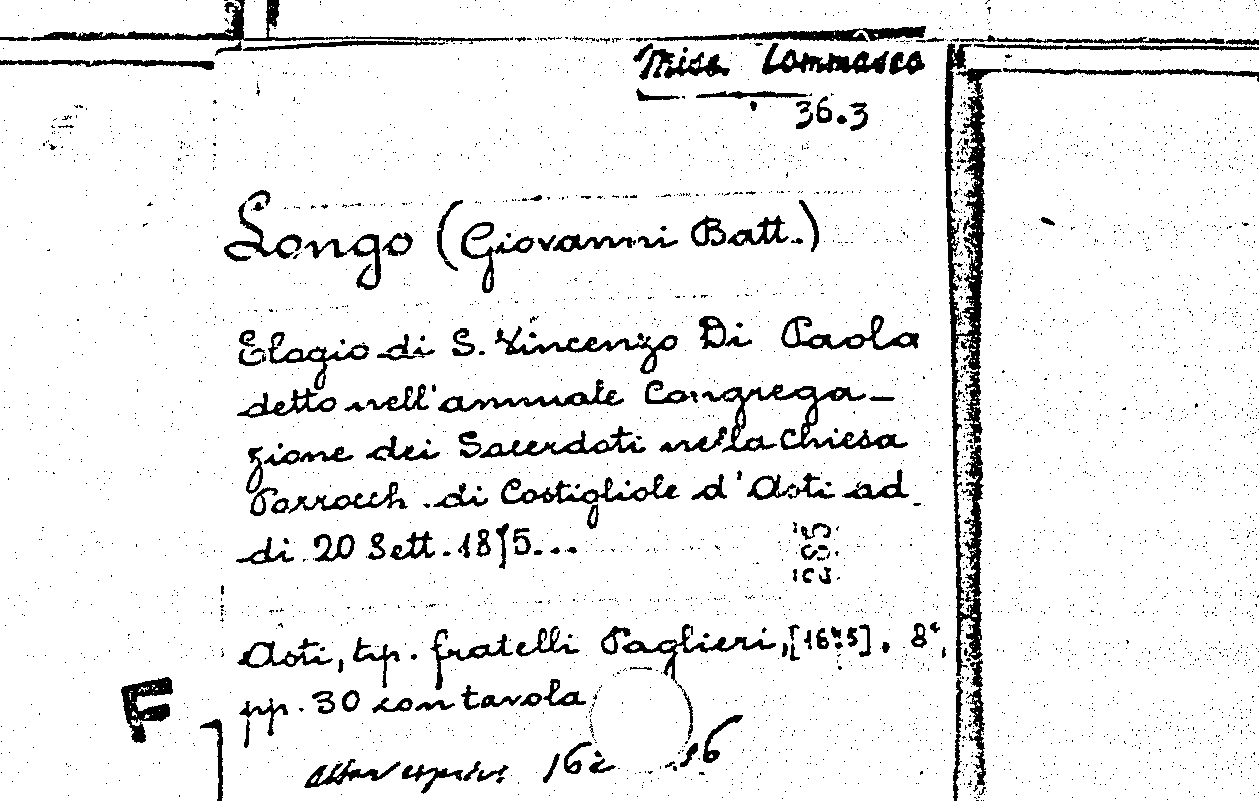 Misc. Tommaseo
36.3
Longo (Giovanni Batt.)
Elogio di S. Vincenzo Di Paola
detto nell'annuale Congrega-
zione dei Sacerdoti nella Chiesa
Parrocch. di Costigliole d'Asti ad
di 20 Sett. 1875...
Asti, tip. fratelli Paglieri, 8°,
pp. 30 con tavola
F